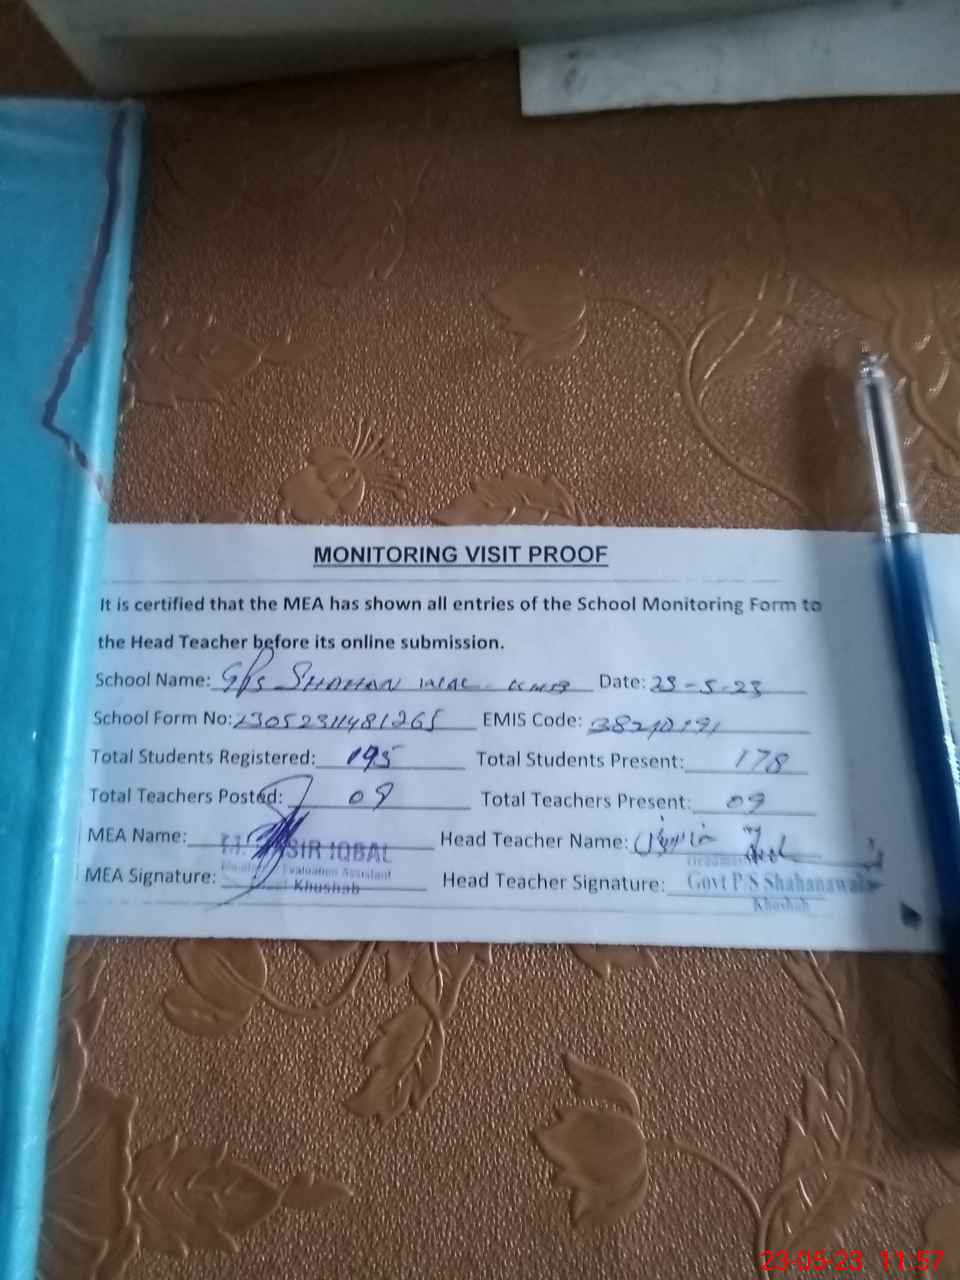 MONITORING VISIT PROOF
It is certified that the MEA has shown all entries of the School Monitoring Form to
the Head Teacher before its online submission.
School Name: GPS SHAHAN WAL Date: 23-5-23
School Form No: 2305231481265 EMIS Code: 38210191
Total Students Registered: 195 Total Students Present: 178
Total Teachers Posted: 09 Total Teachers Present: 09
MEA Name: Head Teacher Name:
SIR IQBAL
Evaluation Assistant
Khushab
MEA Signature: Head Teacher Signature:
Govt P/S Shahanawala
Khushab
23-05-23 11:57